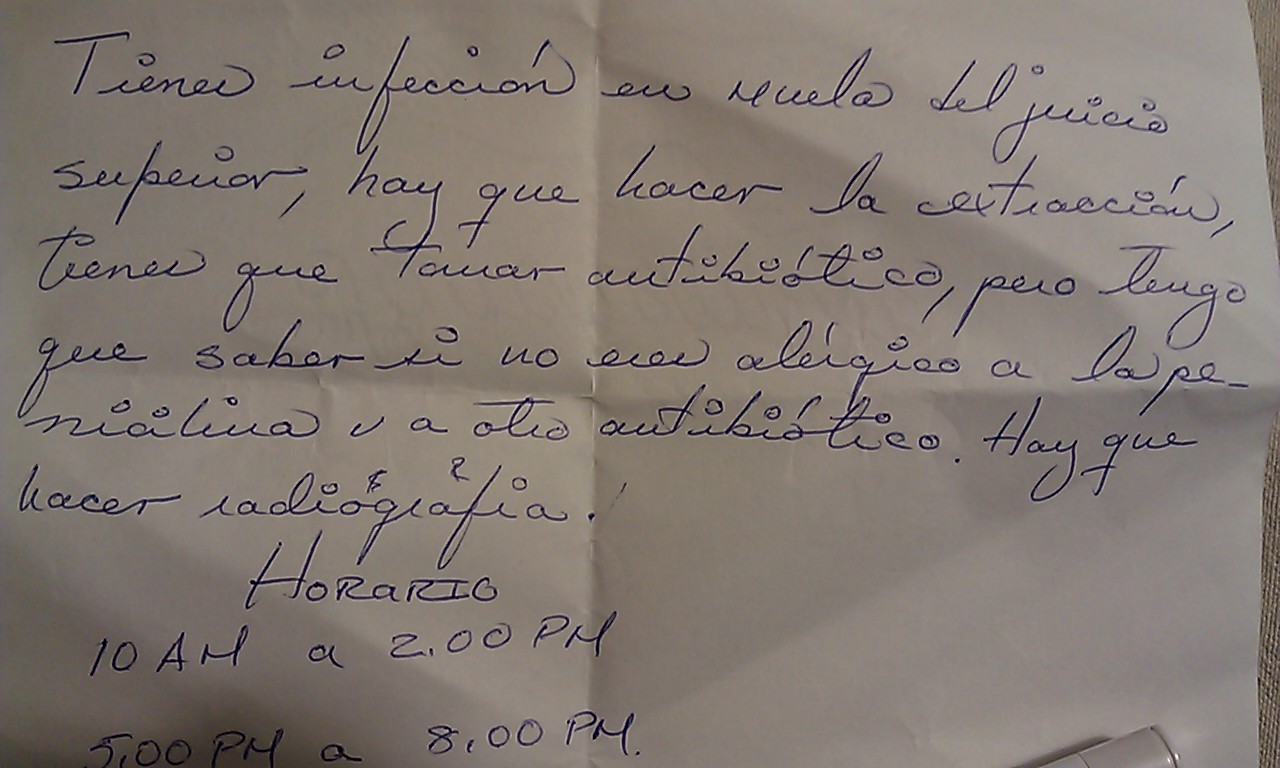 Tienes infección en muela del juicio
superior, hay que hacer la extracción,
tienes que tomar antibiótico, pero tengo
que saber si no eres alérgico a la pe-
nicilina v a otro antibiótico. Hay que
hacer radiografia.
HORARIO
10 AM a 2.00 PM
5,00 PM a 8,00 PM.